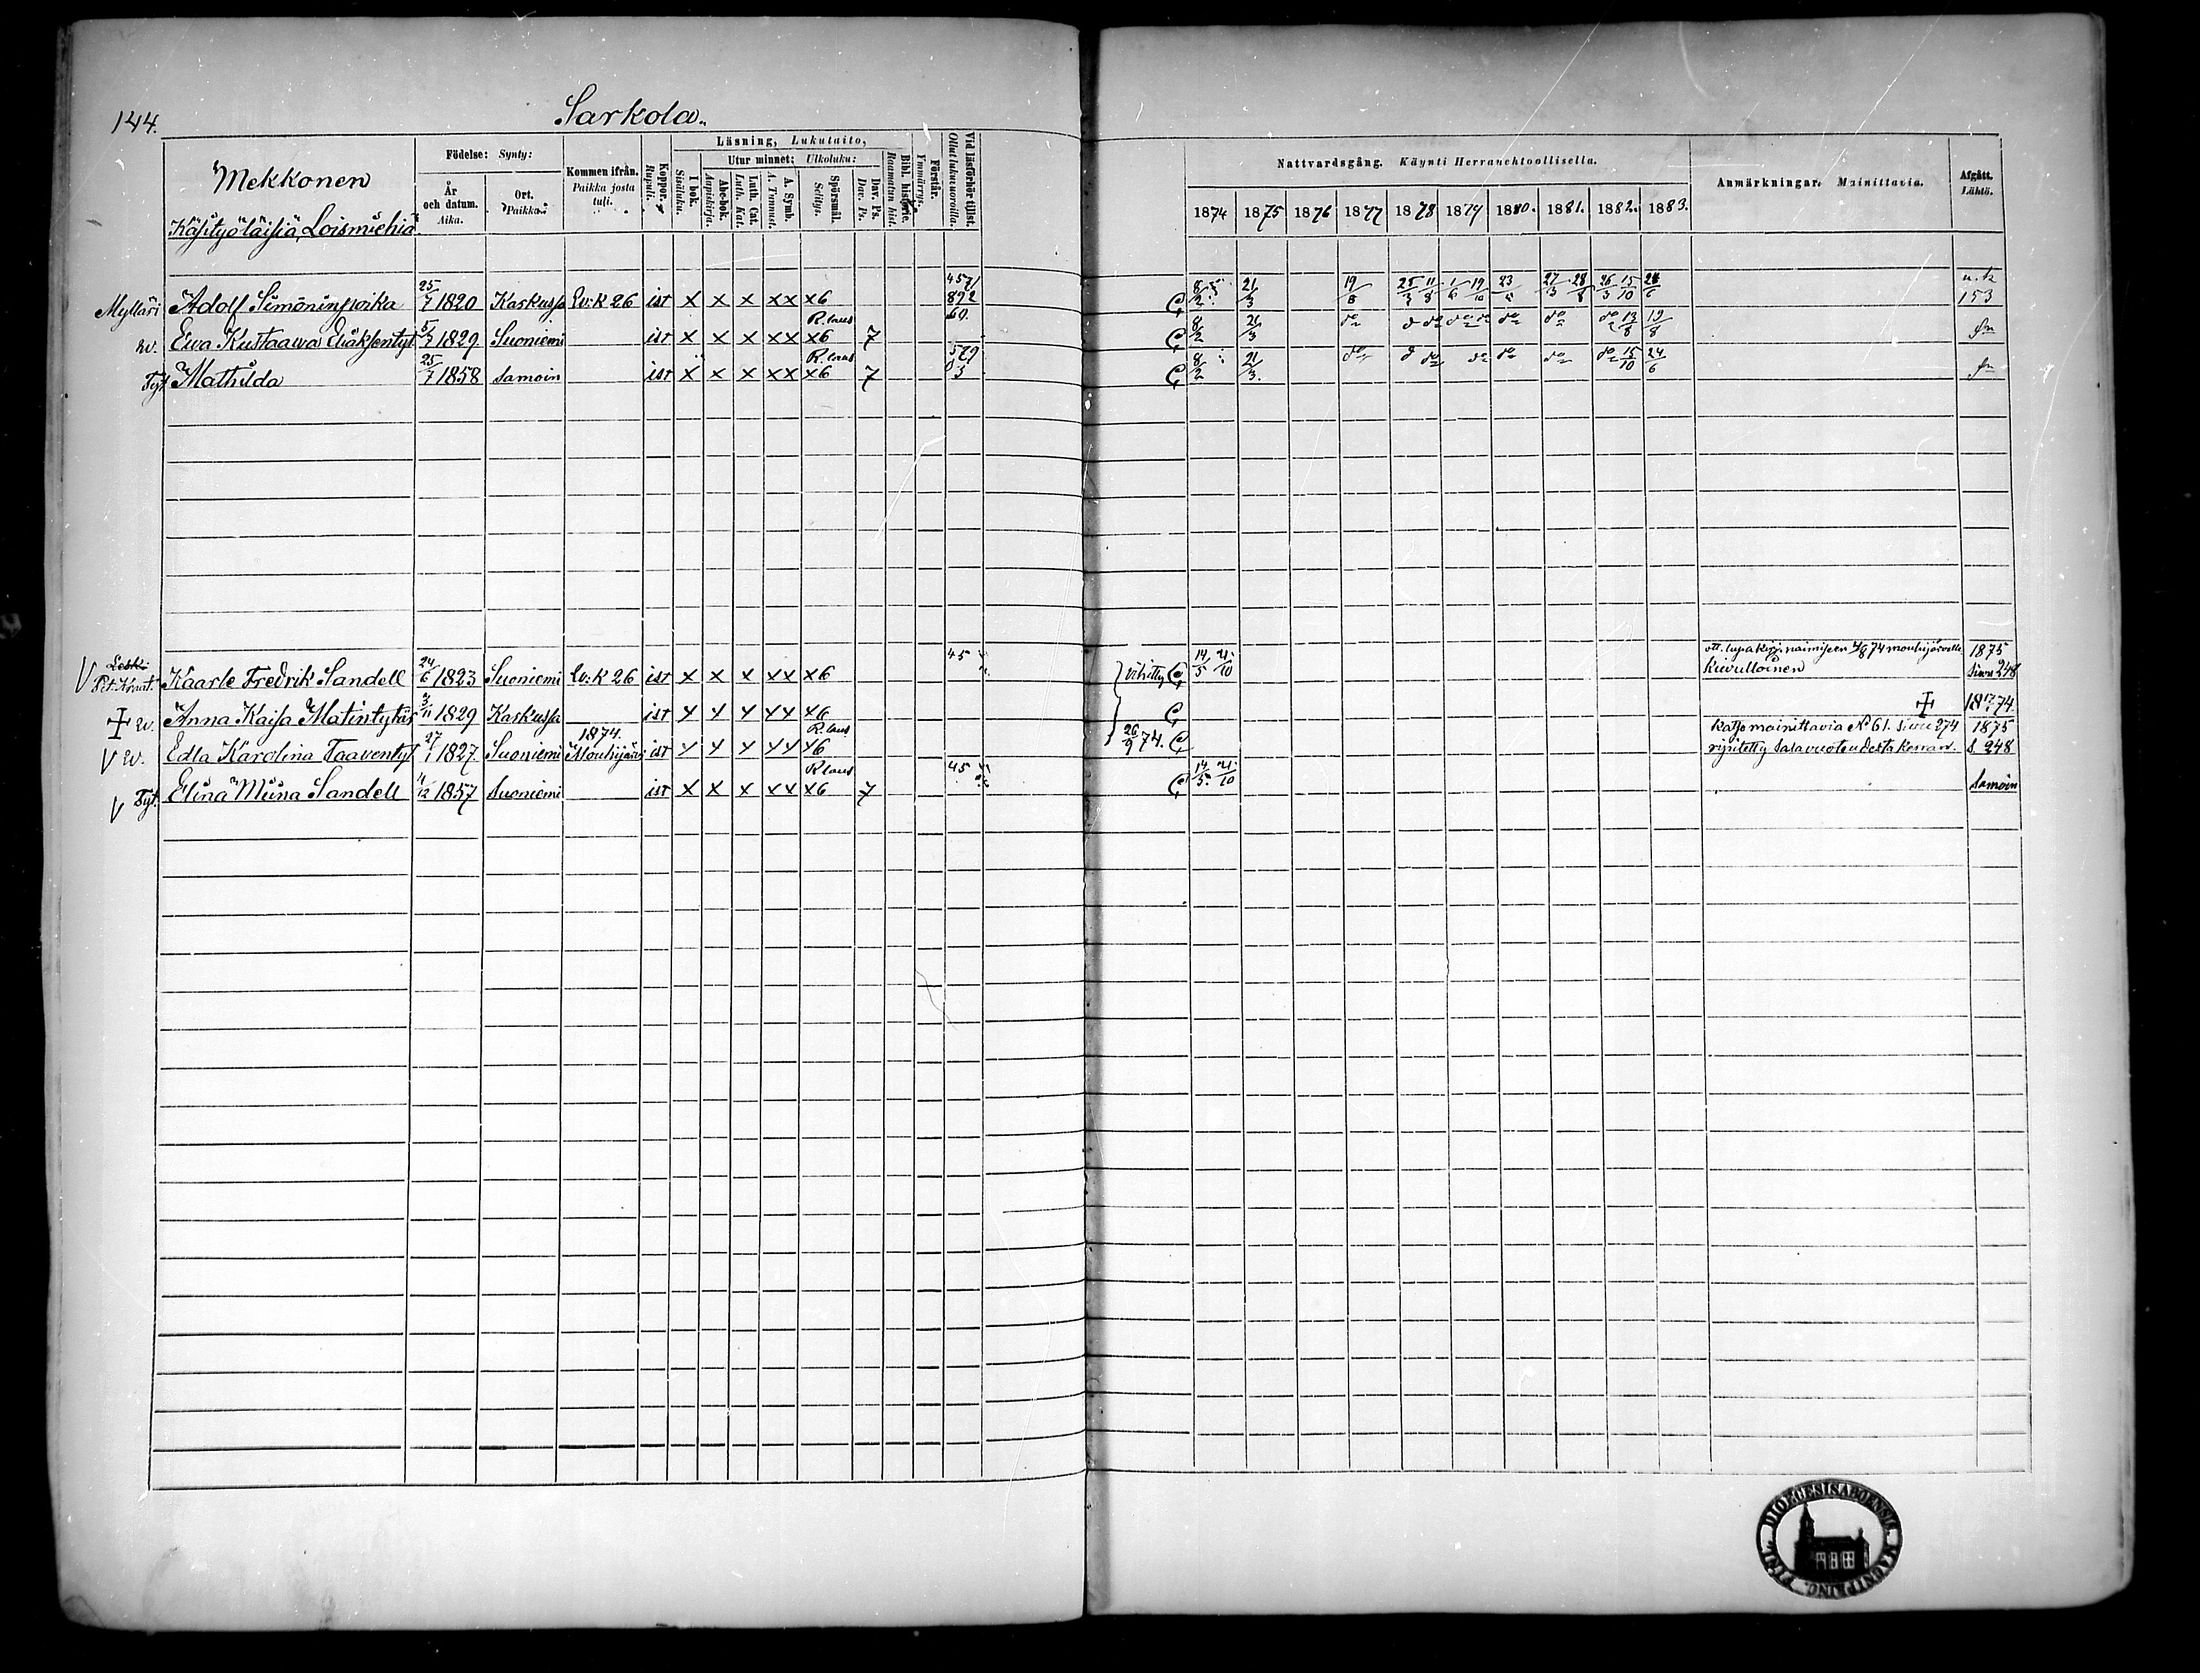 144.
Sarkola.
Mekkonen
Käsityöläisiä, Loismiehiä
Födelse: Synty:
År och datum. Aika.
Ort. Paikka.
Kommen ifrån. Paikka josta tuli.
Koppor. Rupuli.
Läsning, Lukutaito,
I bok. Sisäluku.
Utur minnet: Ulkoluku:
Abc-bok. Aapiskirja.
Luth. Cat. Luth. Kat.
A. Symb. A. Tunnust.
Spörsmål. Selitys.
Dav. Ps. Dav. Ps.
Bibl. historie. Raamatun hist.
Förstår. Ymmärrys.
Vid läsförhör tillst. Ollut lukuvuoroilla.
Nattvardsgång. Käynti Herranehtoollisella.
1874 1875 1876 1877 1878 1879 1880. 1881. 1882. 1883.
Anmärkningar. Mainittavia.
Afgått. Lähtö.
Mylläri Adolf Simoninpoika 25/7 1820 Karkussa Lv: K 26 ist x x x xx x6 4571 892 60. 8/2 21/3 19/8 25/3 11/8 1/6 19/10 23/5 27/3 28/8 26/3 15/10 24/6 u. k 153
w. Ewa Kustaawa Eliaksentyt 5/3 1829 Suoniemi ist x x x xx x6 R. laus 7 8/2 21/3 do do do do do do 13/8 19/8
Tyt Mathilda 25/7 1858 Samoin ist x x x xx x6 R. laus 7 579 3 8/2 21/3. do do do do do do 15/10 24/6
ott. lupakirj. naimiseen 4/8 74 mouhijärvelle 1875
Leski Pit. Kraat. Kaarle Fredrik Sandell 24/6 1823 Suoniemi Lv: K 26 ist x x x xx x6 45 vihitty 14/5 21/10 Kuivulloinen Sivu 248
+ w. Anna Kaisa Matintytär 3/11 1829 Karkussa ist x x x xx x6 + 18 74.
V w. Edla Karolina Taaventyt 27/1 1827 Suoniemi 1874. Mouhijärvi ist x x x xx x6 R. laus 26/9 74. Katso mainittavia No 61. Sivu 274 1875
ripitetty salavuoteudesta kerran. S. 248
V Tyt. Elina Miina Sandell 4/12 1857 Suoniemi ist x x x xx x6 R laus 7 45 14/5. 21/10 Samoin
DIOECESIS ABOENSIS MAGNI PRINC. FINL.